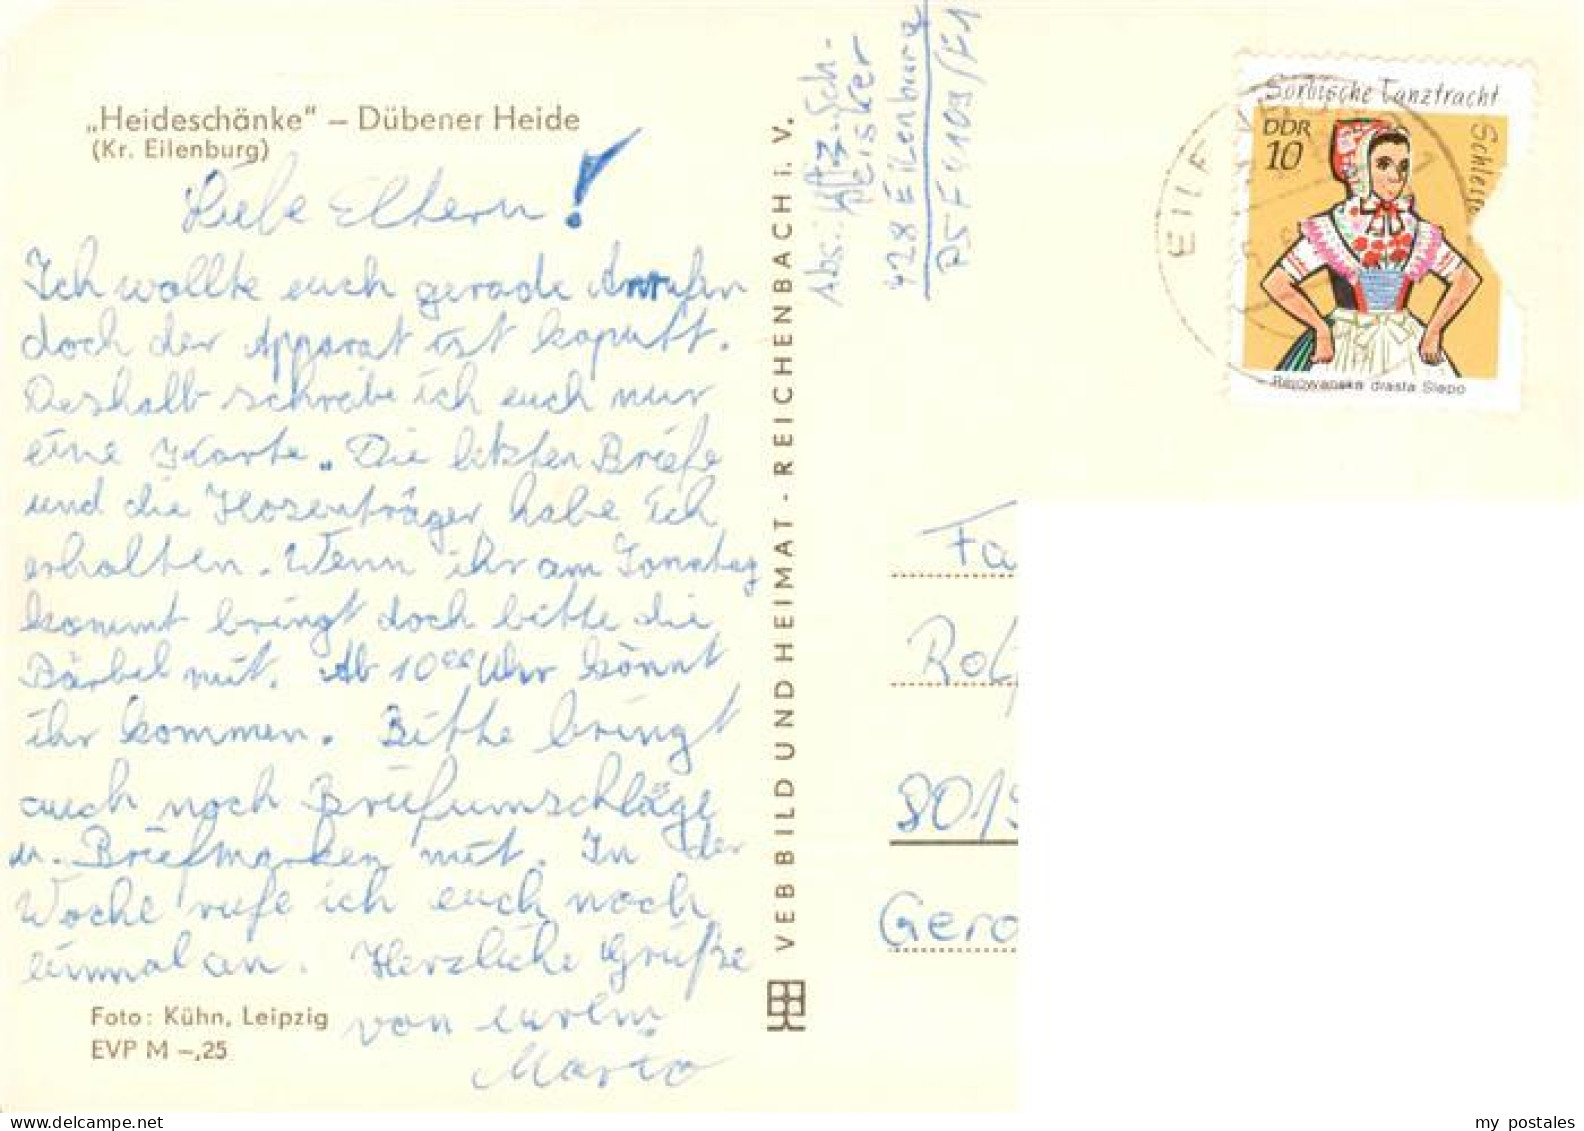 „Heideschänke“ – Dübener Heide
(Kr. Eilenburg)
Liebe Eltern!
Ich wollte euch gerade Anrufen
doch der Apparat ist kaputt.
Deshalb schreibe ich euch nur
eine Karte. Die letzten Briefe
und die Hosenträger habe ich
erhalten. Wenn ihr am Sonntag
kommt bringt doch bitte die
Bärbel mit. Ab 10⁰⁰ Uhr könnt
ihr kommen. Bitte bringt
auch noch Briefumschläge
u. Briefmarken mit. In der
Woche rufe ich euch noch
einmal an. Herzliche Grüße
von eurem
Mario
Foto: Kühn, Leipzig
EVP M –,25
VEB BILD UND HEIMAT · REICHENBACH i. V.
Abs.: Sch-
eisker
728 Eilenburg
PSF 4109/F1
Sorbische Tanztracht
Schleife
DDR
10
Rejowanska drasta Slepo
EILE
Fa
Rol
801
Gero
my postales